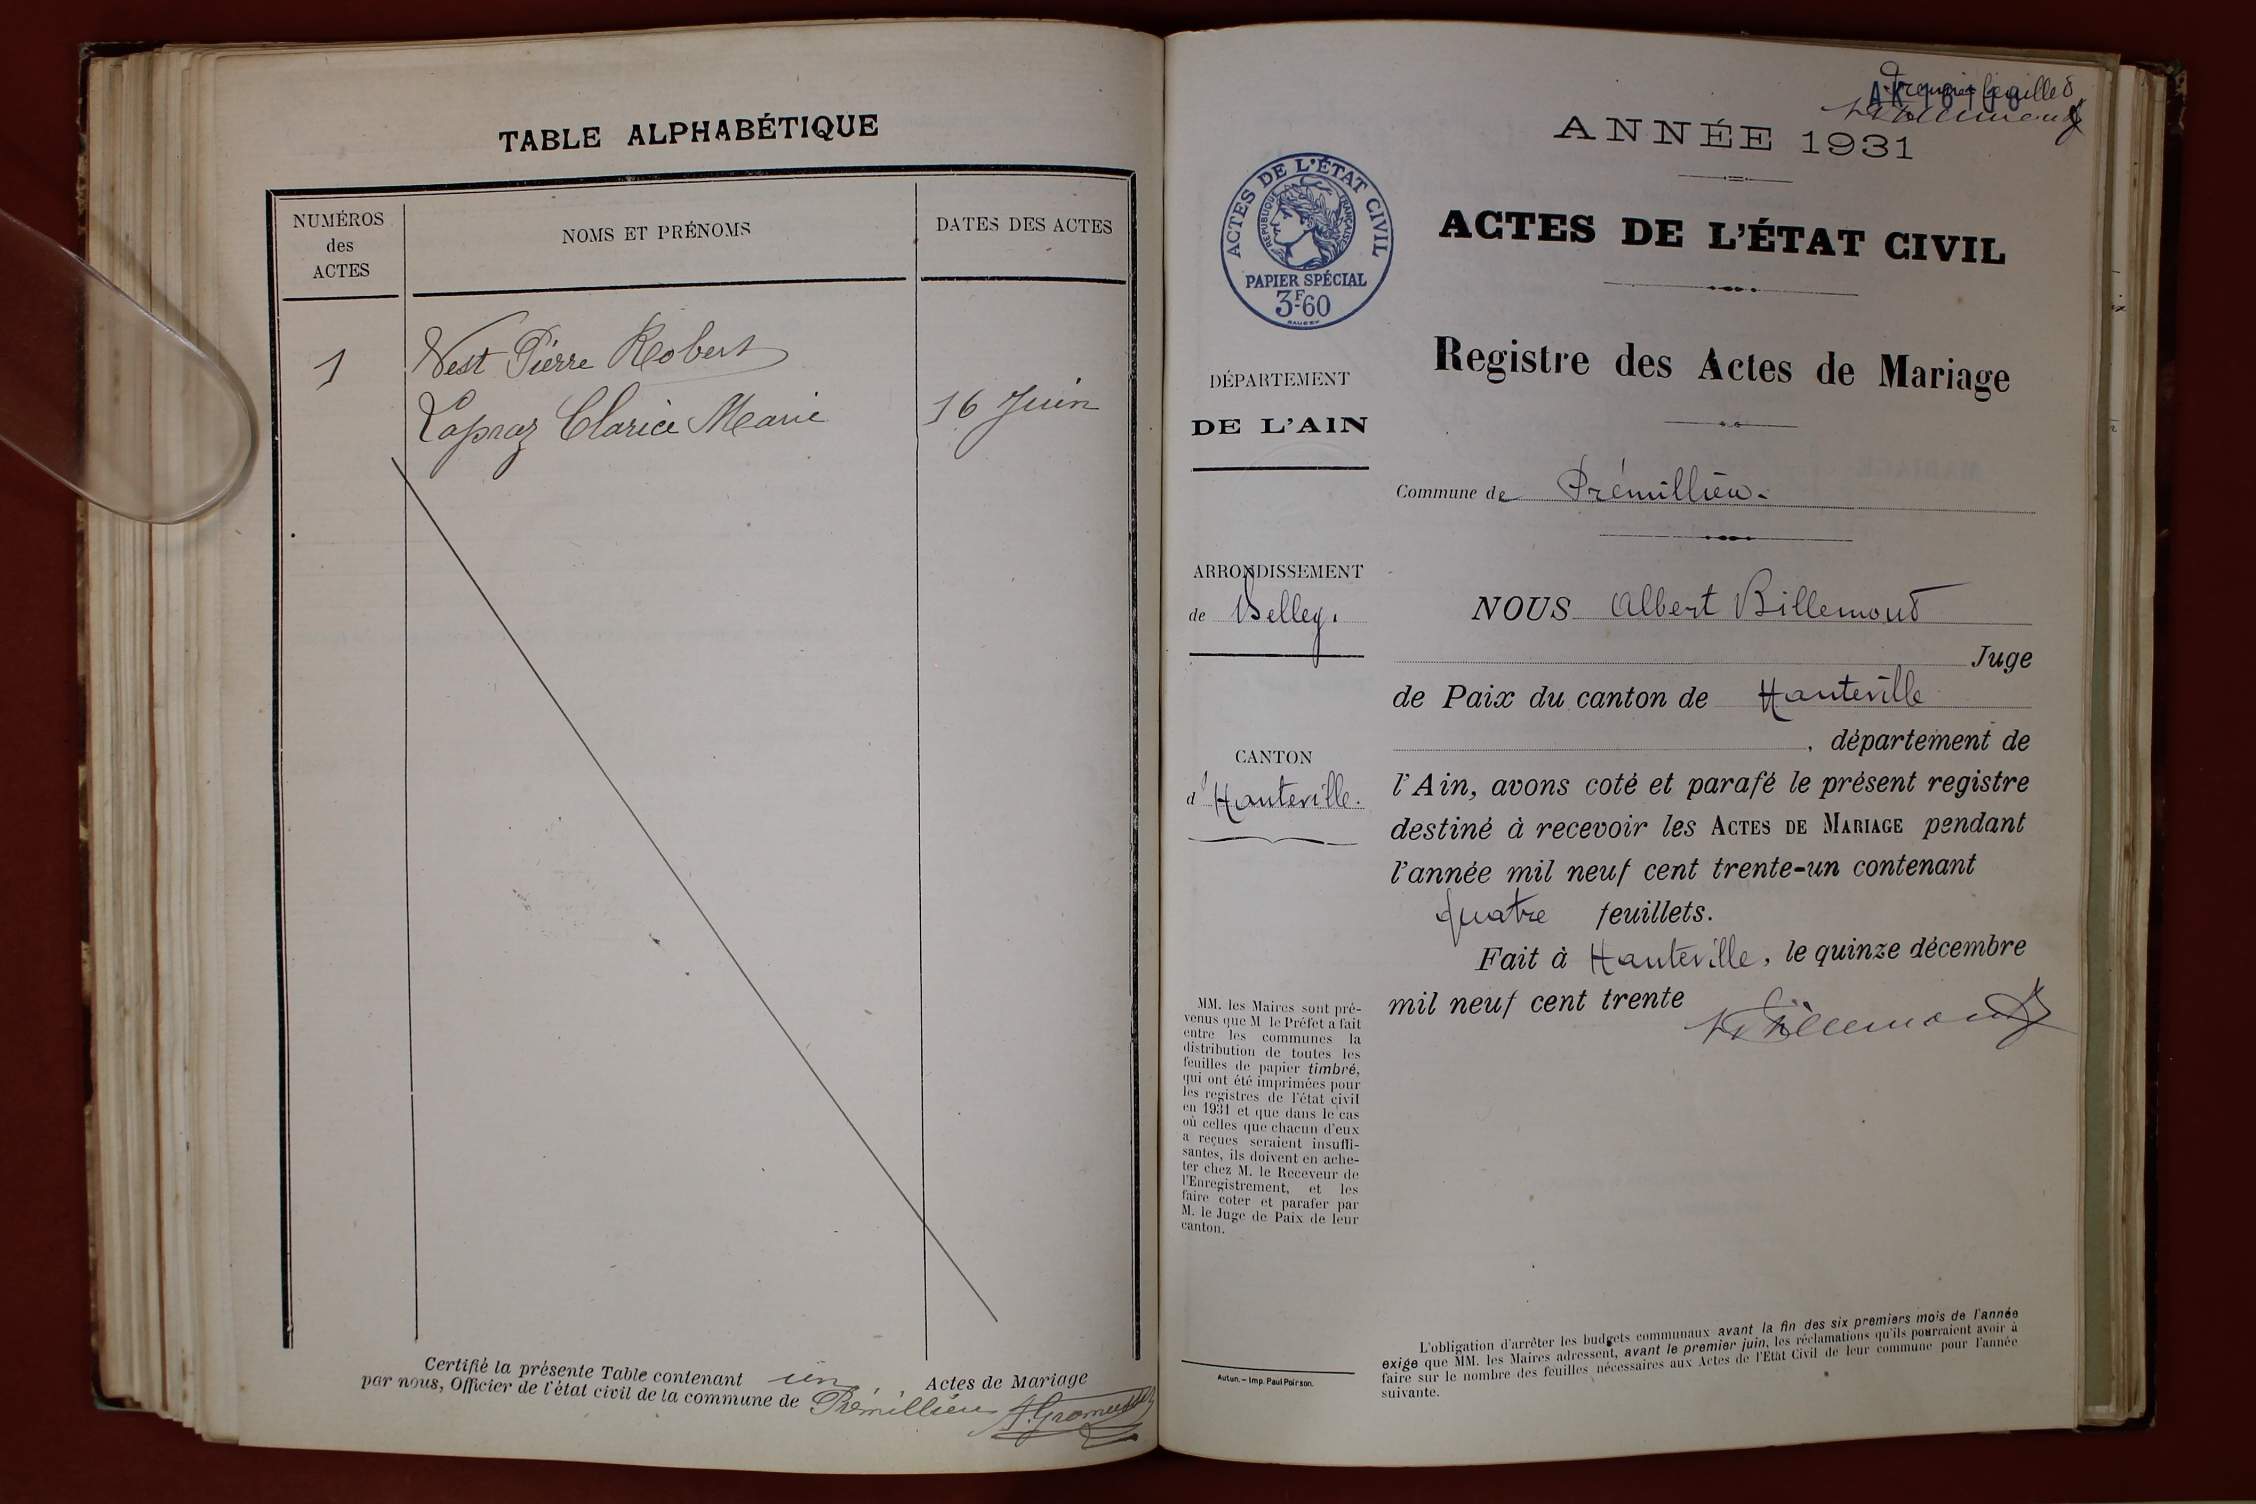 TABLE ALPHABÉTIQUE
NUMÉROS
des
ACTES
NOMS ET PRÉNOMS
DATES DES ACTES
1
Vest Pierre Robert
Lapraz Clarice Marie
16 Juin
Certifié la présente Table contenant un Actes de Mariage
par nous, Officier de l'état civil de la commune de Prémillieu
Premier feuillet
AK 16108
ANNÉE 1931
ACTES DE L'ÉTAT CIVIL
RÉPUBLIQUE FRANÇAISE
PAPIER SPÉCIAL
3F60
ACTES DE L'ÉTAT CIVIL
Registre des Actes de Mariage
DÉPARTEMENT
DE L'AIN
Commune de Prémillieu.
ARRONDISSEMENT
de Belley.
CANTON
d'Hauteville.
NOUS Albert Billemoud
Juge
de Paix du canton de Hauteville
, département de
l'Ain, avons coté et parafé le présent registre
destiné à recevoir les ACTES DE MARIAGE pendant
l'année mil neuf cent trente-un contenant
quatre feuillets.
Fait à Hauteville, le quinze décembre
mil neuf cent trente
MM. les Maires sont pré-
venus que M le Préfet a fait
entre les communes la
distribution de toutes les
feuilles de papier timbré,
qui ont été imprimées pour
les registres de l'état civil
en 1931 et que dans le cas
où celles que chacun d'eux
a reçues seraient insuffi-
santes, ils doivent en ache-
ter chez M. le Receveur de
l'Enregistrement, et les
faire coter et parafer par
M. le Juge de Paix de leur
canton.
Autun. — Imp. Paul Poirson.
L'obligation d'arrêter les budgets communaux avant la fin des six premiers mois de l'année
exige que MM. les Maires adressent, avant le premier juin, les réclamations qu'ils pourraient avoir à
faire sur le nombre des feuilles nécessaires aux Actes de l'Etat Civil de leur commune pour l'année
suivante.